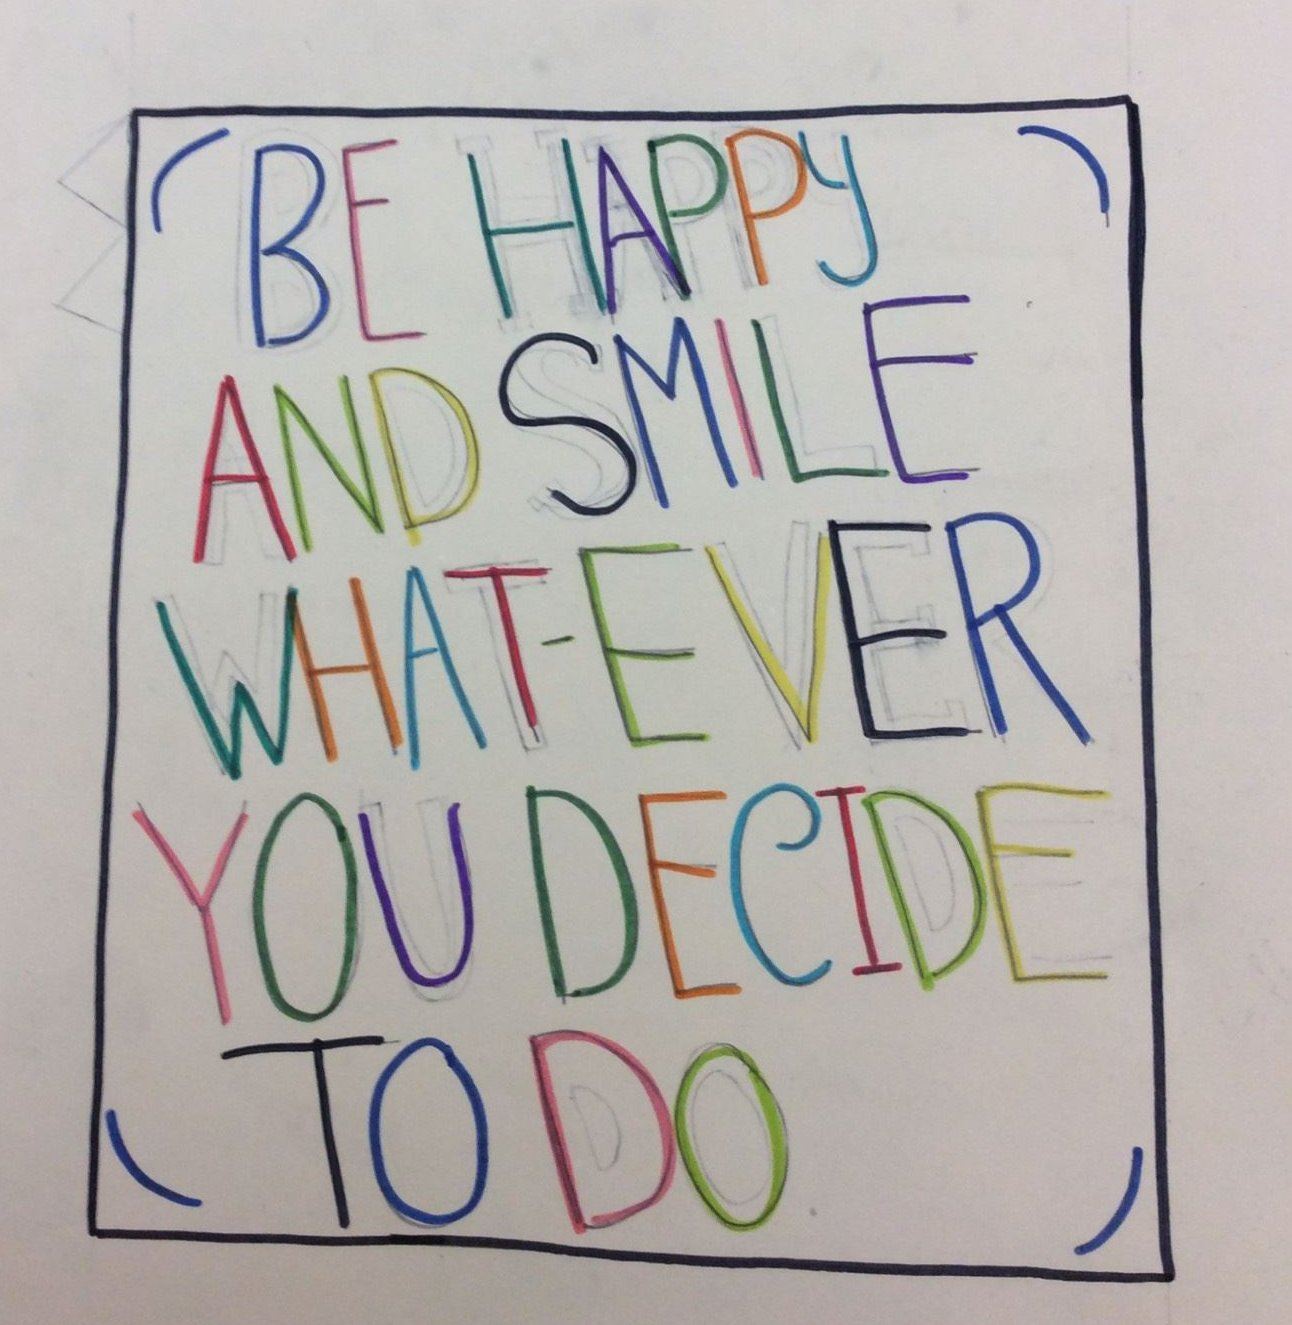 BE HAPPY
AND SMILE
WHAT-EVER
YOU DECIDE
TO DO